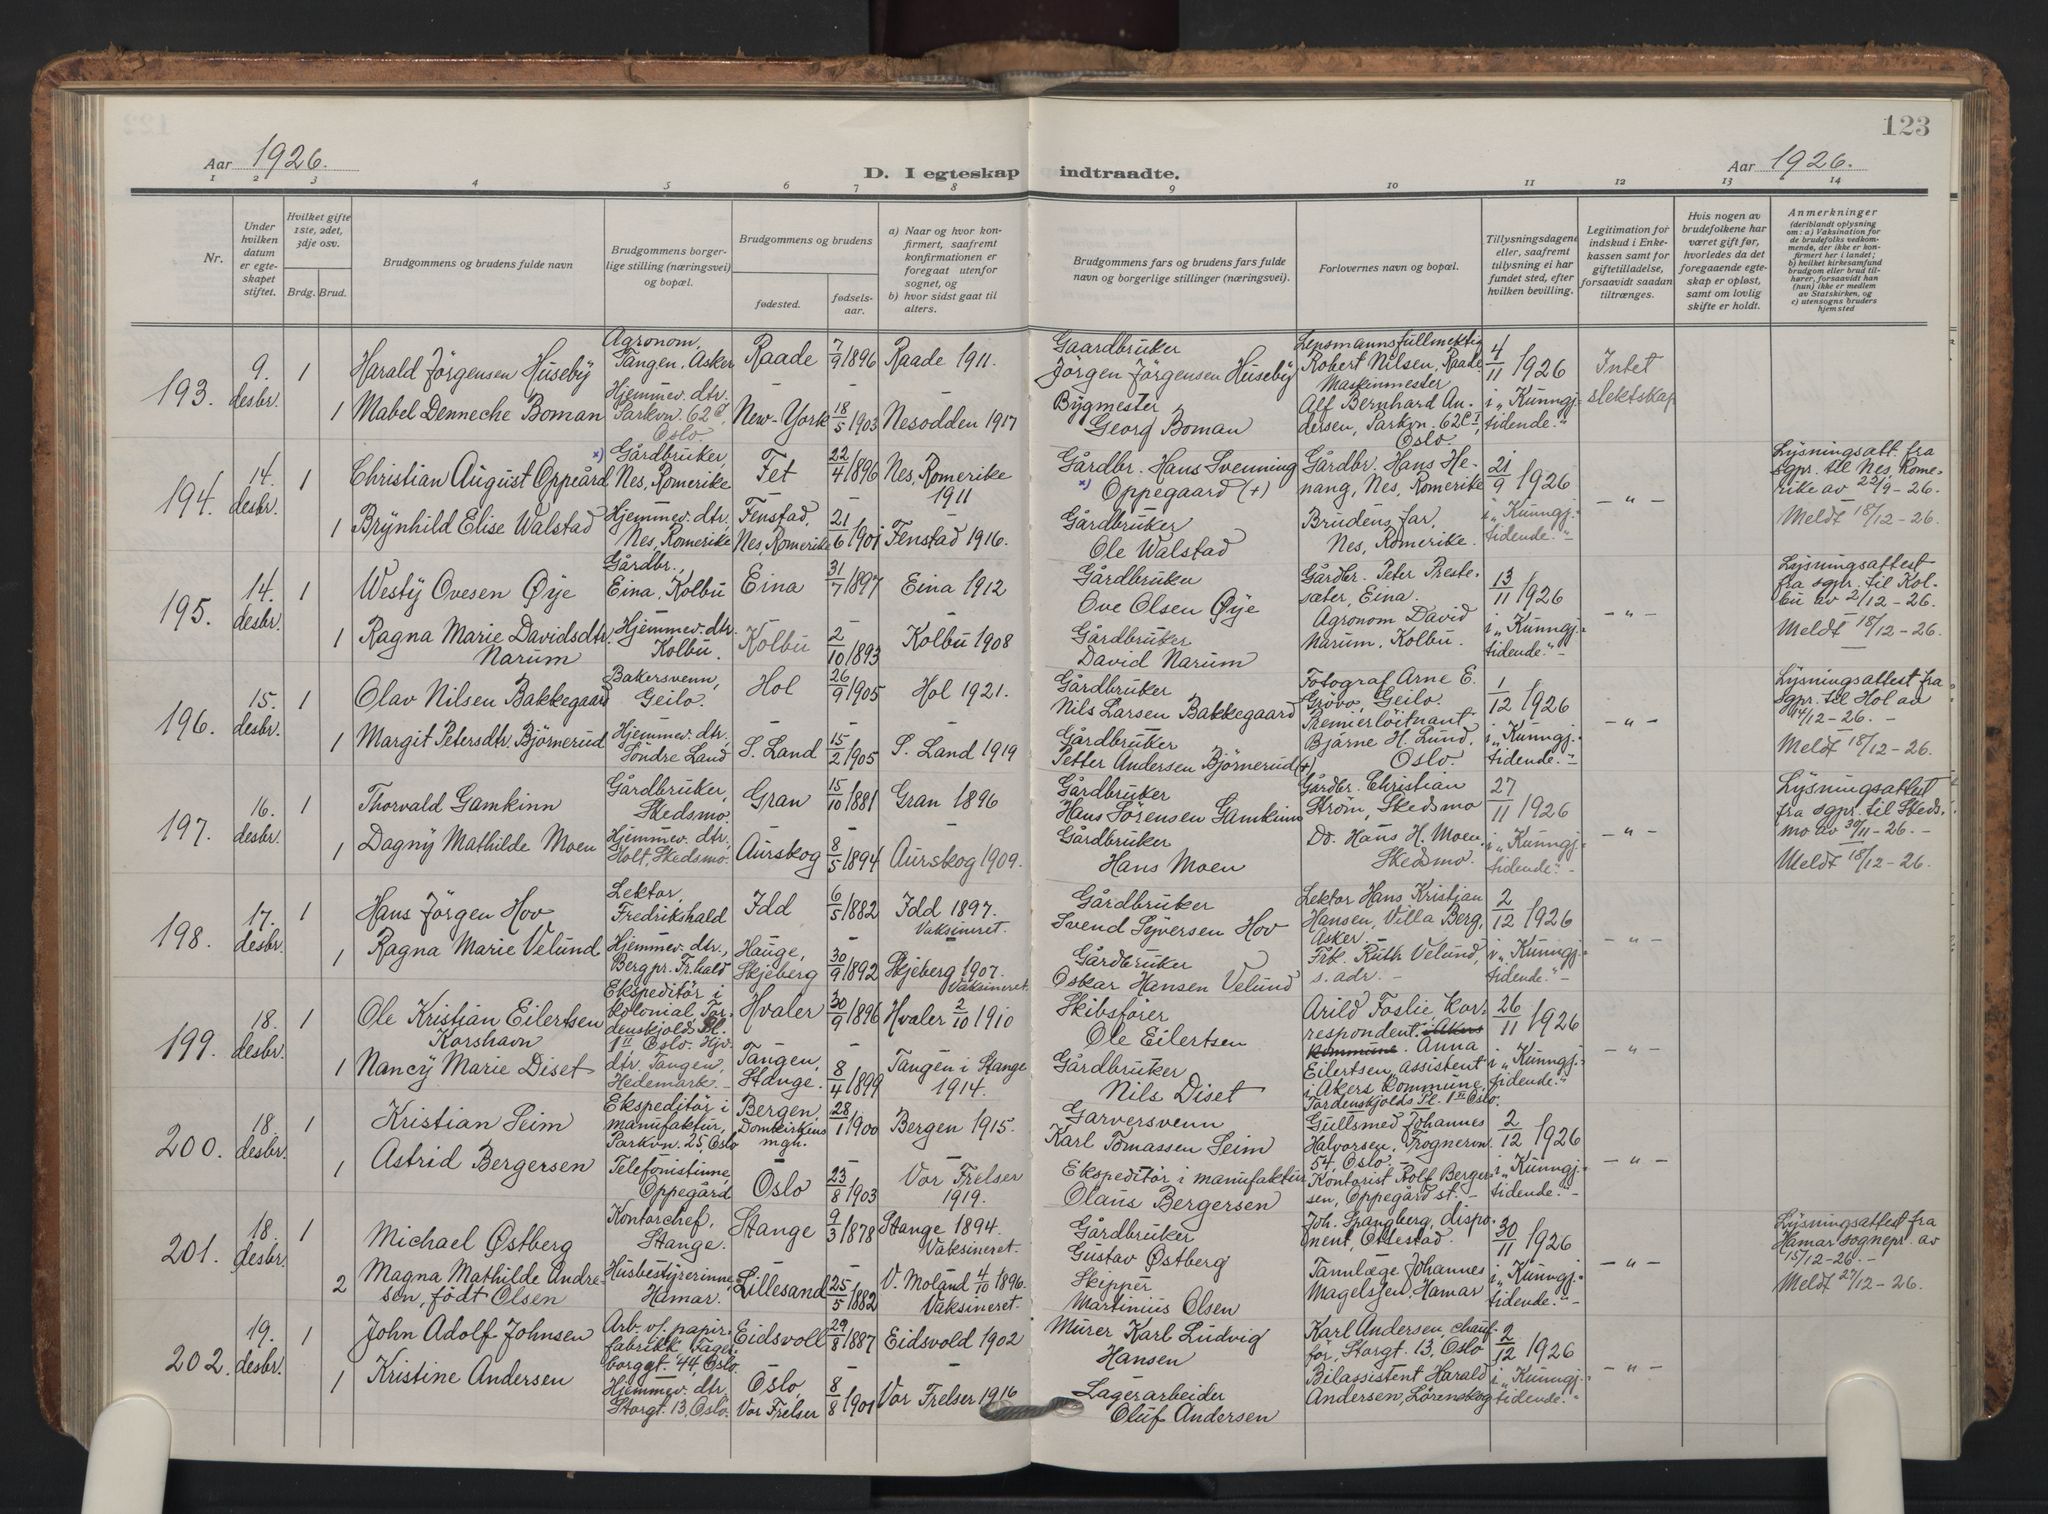 123
Aar 1926.
D. I egteskap indtraadte.
Aar 1926.
1 2 3 4 5 6 7 8 9 10 11 12 13 14
Nr.
Under hvilken datum er egteskapet stiftet.
Hvilket gifte 1ste, 2det, 3dje osv.
Brdg. Brud.
Brudgommens og brudens fulde navn
Brudgommens borgerlige stilling (næringsvei) og bopæl.
Brudgommens og brudens
fødested. fødselsaar.
a) Naar og hvor konfirmert, saafremt konfirmationen er foregaat utenfor sognet, og
b) hvor sidst gaat til alters.
Brudgommens fars og brudens fars fulde navn og borgerlige stillinger (næringsvei).
Forlovernes navn og bopæl.
Tillysningsdagene eller, saafremt tillysning ei har fundet sted, efter hvilken bevilling.
Legitimation for indskud i Enkekassen samt for giftetilladelse, forsaavidt saadan tiltrænges.
Hvis nogen av brudefolkene har været gift før, hvorledes da det foregaaende egteskap er opløst, samt om lovlig skifte er holdt.
Anmerkninger
(deriblandt oplysning om: a) Vaksination for de brudefolks vedkommende, der ikke er konfirmert her i landet; b) hvilket kirkesamfund brudgom eller brud tilhører, forsaavidt han (hun) ikke er medlem av Statskirken, og c) utensogns bruders hjemsted
193. 9. desbr. 1
Harald Jörgensen Huseby
Agronom, Tangen, Asker
Raade 7/9 1896 Raade 1911.
Gaardbruker
Jörgen Jörgensen Huseby
Lensmannsfullmektig
Robert Nilsen, Raade
4/11 1926
Intet slektskap
1 Mabel Denneche Boman
Hjemmev. dtr.
Parkvn. 62 C, Oslo.
New-York 18/5 1903 Nesodden 1917
Bygmester
Georg Boman
Maskinmester
Alf Bernhard Andersen, Parkvn. 62 C I, Oslo.
i „Kunngj. tidende."
194. 14. desbr. 1
Christian August Oppeård x)
Gårdbruker,
Nes, Romerike
Fet 22/4 1896 Nes, Romerike 1911
Gårdbr. Hans Svenning
x) Oppegaard (+)
Gårdbr. Hans Henang, Nes, Romerike
21/9 1926
- " -
Lysningsatt. fra sgpr. til Nes, Romerike av 22/9-26.
Meldt 18/12-26.
1 Brynhild Elise Walstad
Hjemmev. dtr.
Nes, Romerike
Fenstad, Nes, Romerike 21/6 1901 Fenstad 1916.
Gårdbruker
Ole Walstad
Brudens far,
Nes, Romerike.
i „Kunngj. tidende."
195. 14. desbr. 1
Westy Ovesen Øye
Gårdbr.,
Eina, Kolbu
Eina 31/7 1897 Eina 1912
Gårdbruker
Ove Olsen Øye
Gårdbr. Peter Prestesæter, Eina.
13/11 1926
- " -
Lysningsattest fra sgpr. til Kolbu av 2/12-26.
Meldt 18/12-26.
1 Ragna Marie Davidsdtr. Narum
Hjemmev. dtr.
Kolbu.
Kolbu 2/10 1893 Kolbu 1908
Gårdbruker
David Narum
Agronom David Narum, Kolbu.
i „Kunngj. tidende."
196. 15. desbr. 1
Olav Nilsen Bakkegaard
Bakersvenn,
Geilo.
Hol 26/9 1905 Hol 1921.
Gårdbruker
Nils Larsen Bakkegaard
Fotograf Arne E. Grovo, Geilo.
1/12 1926
- " -
Lysningsattest fra sgpr. til Hol av 14/12-26.
Meldt 18/12-26.
1 Margit Petersdtr. Björnerud
Hjemmev. dtr.
Söndre Land
S. Land 15/2 1905 S. Land 1919
Gårdbruker
Petter Andersen Björnerud (+)
Premierlöitnant
Bjarne H. Lund, Oslo.
i „Kunngj. tidende."
197. 16. desbr. 1
Thorvald Gamkinn
Gårdbruker,
Skedsmo.
Gran 15/10 1881 Gran 1896
Gårdbruker
Hans Sörensen Gamkinn
Gårdbr. Christian Ström, Skedsmo
27/11 1926
- " -
Lysningsattest fra sgpr. til Skedsmo av 30/11-26.
Meldt 18/12-26.
1 Dagny Mathilde Moen
Hjemmev. dtr.,
Holt, Skedsmo.
Aurskog 8/5 1894 Aurskog 1909.
Gårdbruker
Hans Moen
Do. Hans H. Moen, Skedsmo.
i „Kunngj. tidende."
198. 17. desbr. 1
Hans Jörgen Hov
Lektor,
Fredrikshald
Idd 6/5 1882 Idd 1897. Vaksineret.
Gårdbruker
Svend Syversen Hov
Lektor Hans Kristian Hansen, Villa Berg, Asker.
2/12 1926
- " -
1 Ragna Marie Velund
Hjemmev. dtr.,
Berg pr. Fr.hald
Hauge, Skjeberg 30/9 1892 Skjeberg 1907. Vaksineret.
Gårdbruker
Oskar Hansen Velund
Frk. Ruth Velund,
s. adr.
i „Kunngj. tidende."
199. 18. desbr. 1
Ole Kristian Eilertsen Korshavn
Ekspeditör i kolonial, Tordenskjolds Pl. 1 II Oslo.
Hvaler 30/9 1896 Hvaler 2/10 1910
Skibsförer
Ole Eilertsen
Arild Foslie, Korrespondent. i Akers kommune.
26/11 1926
- " -
1 Nancy Marie Diset
Hjv. dtr. Tangen, Hedemark.
Tangen, Stange. 8/4 1899 Tangen i Stange 1914.
Gårdbruker
Nils Diset
Anna Eilertsen, assistent i Akers kommune, Tordenskjolds Pl. 1 II Oslo.
i „Kunngj. tidende."
200. 18. desbr. 1
Kristian Seim
Ekspeditör i manufaktur,
Parkvn. 25, Oslo
Bergen, Domkirkens mgh. 28/1 1900 Bergen 1915.
Garversvenn
Karl Tomassen Seim
Gullsmed Johannes Halvorsen, Frognervn. 54, Oslo
2/12 1926
- " -
1 Astrid Bergersen
Telefonistinne,
Oppegård
Oslo 23/8 1903 Vor Frelser 1919.
Ekspeditör i manufaktur
Olaus Bergersen
Kontorist Rolf Bergersen, Oppegård st.
i „Kunngj. tidende."
201. 18. desbr. 1
Michael Østberg
Kontorchef,
Stange.
Stange 9/3 1878 Stange 1894. Vaksineret.
Gårdbruker
Gustav Østberg
Joh. Spangberg, disponent, Ottestad.
30/11 1926
- " -
Lysningsattest fra Hamar sognepr. av 15/12-26.
Meldt 27/12-26.
2 Magna Mathilde Andresen, födt Olsen
Husbestyrerinne,
Hamar.
Lillesand 25/5 1882 V. Moland 4/10 1896. Vaksineret.
Skipper
Martinius Olsen
Tannlæge Johannes Magelssen, Hamar
i „Kunngj. tidende."
202. 19. desbr. 1
John Adolf Johnsen
Arb. v. papirfabrikk Fagerborggt. 44, Oslo.
Eidsvoll 29/8 1887 Eidsvold 1902
Murer Karl Ludvig Hansen
Karl Andersen, chaufför, Storgt. 13, Oslo
2/12 1926
- " -
1 Kristine Andersen
Hjemmev. dtr.,
Storgt. 13, Oslo.
Oslo, Vor Frelser 8/8 1901 Vor Frelser 1916
Lagerarbeider
Oluf Andersen
Bilassistent Harald Andersen, Lörenskog
i „Kunngj. tidende."